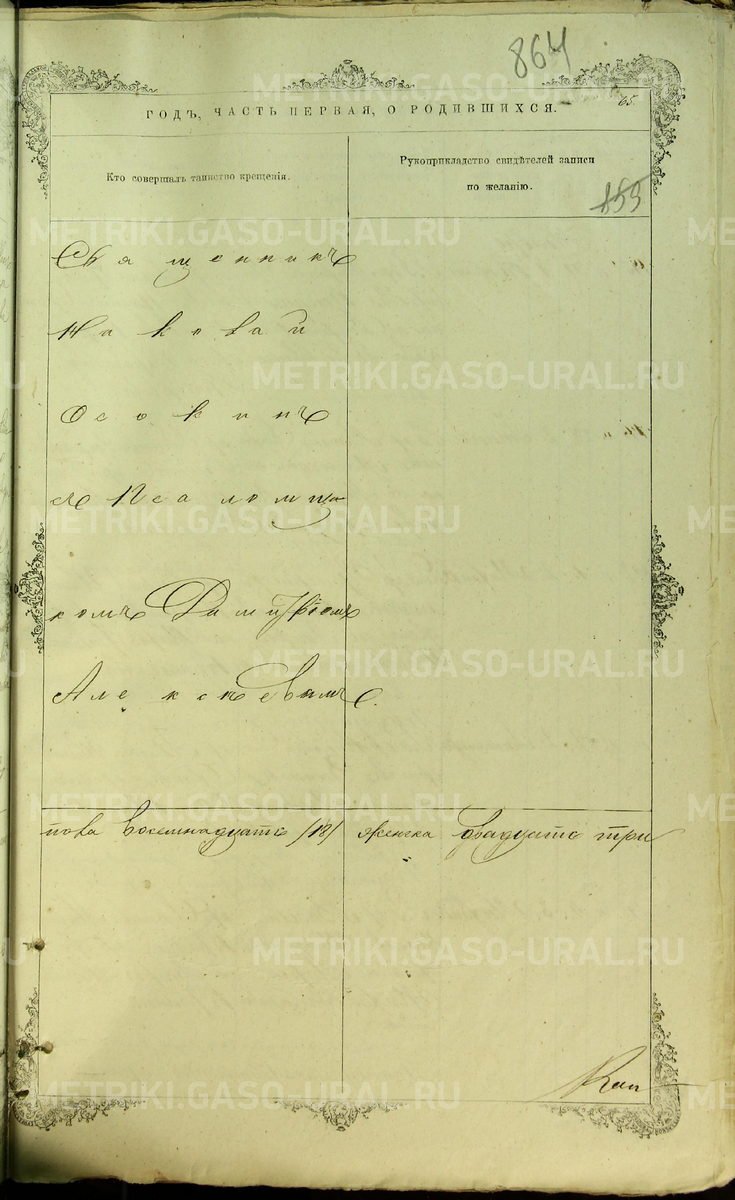 864
ГОДЪ, ЧАСТЬ ПЕРВАЯ, О РОДИВШИХСЯ.
65.
Кто совершалъ таинство крещенія.
Рукоприкладство свидѣтелей записи
по желанію.
859
Священникъ
Іаковъ
Осокинъ
съ Псаломщи
комъ Димитріемъ
Алексѣевымъ.
пола восемнадцать /18/ женска двадцать три
METRIKI.GASO-URAL.RU